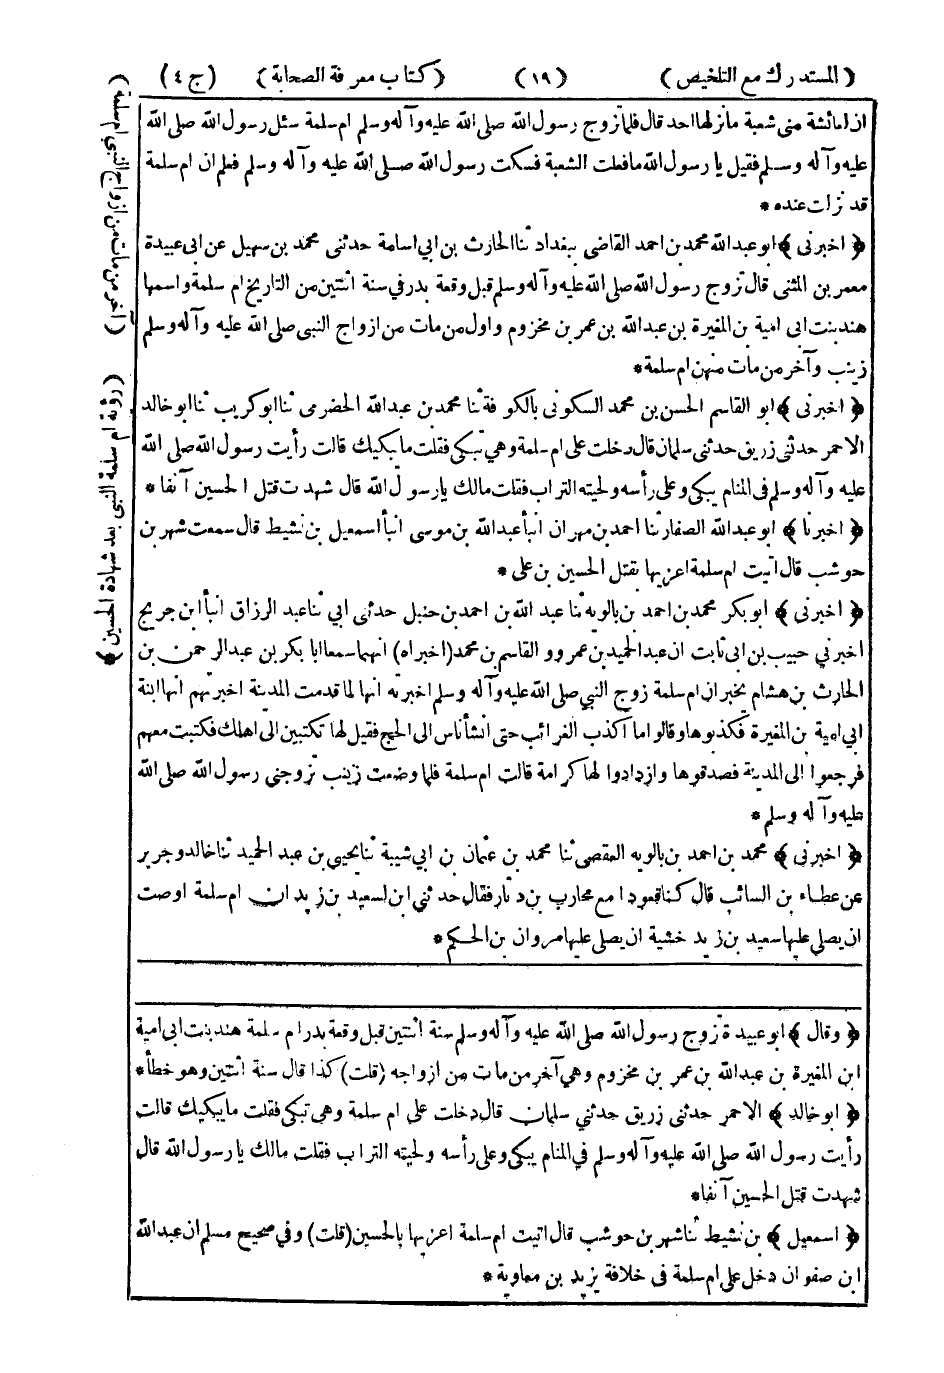 (المستدرك مع التلخيص) (١٩) (كتاب معرفة الصحابة) (ج ٤)
ان لعائشة منى شعبة ما نزلها احد قال فلما تزوج رسول الله صلى الله عليه وآله وسلم ام سلمة سئل رسول الله صلى الله
عليه وآله وسلم فقيل يا رسول الله ما فعلت الشعبة فسكت رسول الله صلى الله عليه وآله وسلم فعلم ان ام سلمة
قد نزلت عنده *
﴿ اخبرنى ﴾ ابو عبد الله محمد بن احمد القاضى ببغداد ثنا الحارث بن ابى اسامة حدثنى محمد بن سهيل عن ابى عبيدة
معمر بن المثنى قال تزوج رسول الله صلى الله عليه وآله وسلم قبل وقعة بدر فى سنة اثنتين من التاريخ ام سلمة واسمها
هند بنت ابى امية بن المغيرة بن عبد الله بن عمر بن مخزوم واول من مات من ازواج النبى صلى الله عليه وآله وسلم
زينب وآخر من مات منهن ام سلمة *
﴿ اخبرنى ﴾ ابو القاسم الحسن بن محمد السكونى بالكوفة ثنا محمد بن عبد الله الحضرمى ثنا ابو كريب ثنا ابو خالد
الاحمر حدثنى زريق حدثنى سلمان قال دخلت على ام سلمة وهى تبكى فقلت ما يبكيك قالت رأيت رسول الله صلى الله
عليه وآله وسلم فى المنام يبكى وعلى رأسه ولحيته التراب فقلت مالك يا رسول الله قال شهدت قتل الحسين آنفا *
﴿ اخبرنا ﴾ ابو عبد الله الصفار ثنا احمد بن مهران انبأ عبد الله بن موسى انبأ اسمعيل بن نشيط قال سمعت شهر بن
حوشب قال اتيت ام سلمة اعزيها بقتل الحسين بن على *
﴿ اخبرنى ﴾ ابو بكر محمد بن احمد بن بالويه ثنا عبد الله بن احمد بن حنبل حدثنى ابى ثنا عبد الرزاق انبأ ابن جريج
اخبرنى حبيب بن ابى ثابت ان عبد الحميد بن عمرو والقاسم بن محمد (اخبراه) انهما سمعا ابا بكر بن عبد الرحمن بن
الحارث بن هشام يخبر ان ام سلمة زوج النبى صلى الله عليه وآله وسلم اخبرته انها لما قدمت المدينة اخبرتهم انها ابنة
ابى امية بن المغيرة فكذبوها وقالوا ما أكذب الغرائب حتى انشأ ناس الى الحج فقيل لها تكتبين الى اهلك فكتبت معهم
فرجعوا الى المدينة فصدقوها وازدادوا لها كرامة قالت ام سلمة فلما وضعت زينب تزوجنى رسول الله صلى الله
عليه وآله وسلم *
﴿ اخبرنى ﴾ محمد بن احمد بن بالويه العفصى ثنا محمد بن عثمان بن ابى شيبة ثنا يحيى بن عبد الحميد ثنا خالد وجرير
عن عطاء بن السائب قال كنا قعودا مع محارب بن دثار فقال حدثنى ابن لسعيد بن زيد ان ام سلمة اوصت
ان يصلى عليها سعيد بن زيد خشية ان يصلى عليها مروان بن الحكم *
﴿ وقال ﴾ ابو عبيدة تزوج رسول الله صلى الله عليه وآله وسلم سنة اثنتين قبل وقعة بدر ام سلمة هند بنت ابى امية
ابن المغيرة بن عبد الله بن عمر بن مخزوم وهى آخر من مات من ازواجه (قلت) كذا قال سنة اثنتين وهو خطأ *
﴿ ابو خالد ﴾ الاحمر حدثنى زريق حدثنى سلمان قال دخلت على ام سلمة وهى تبكى فقلت ما يبكيك قالت
رأيت رسول الله صلى الله عليه وآله وسلم فى المنام يبكى وعلى رأسه ولحيته التراب فقلت مالك يا رسول الله قال
شهدت قتل الحسين آنفا *
﴿ اسمعيل ﴾ بن نشيط ثنا شهر بن حوشب قال اتيت ام سلمة اعزيها بالحسين (قلت) وفى صحيح مسلم ان عبد الله
ابن صفوان دخل على ام سلمة فى خلافة يزيد بن معاوية *
(آخر من مات من ازواج النبى ام سلمة)
(رؤية ام سلمة النبى بعد شهادة الحسين *)